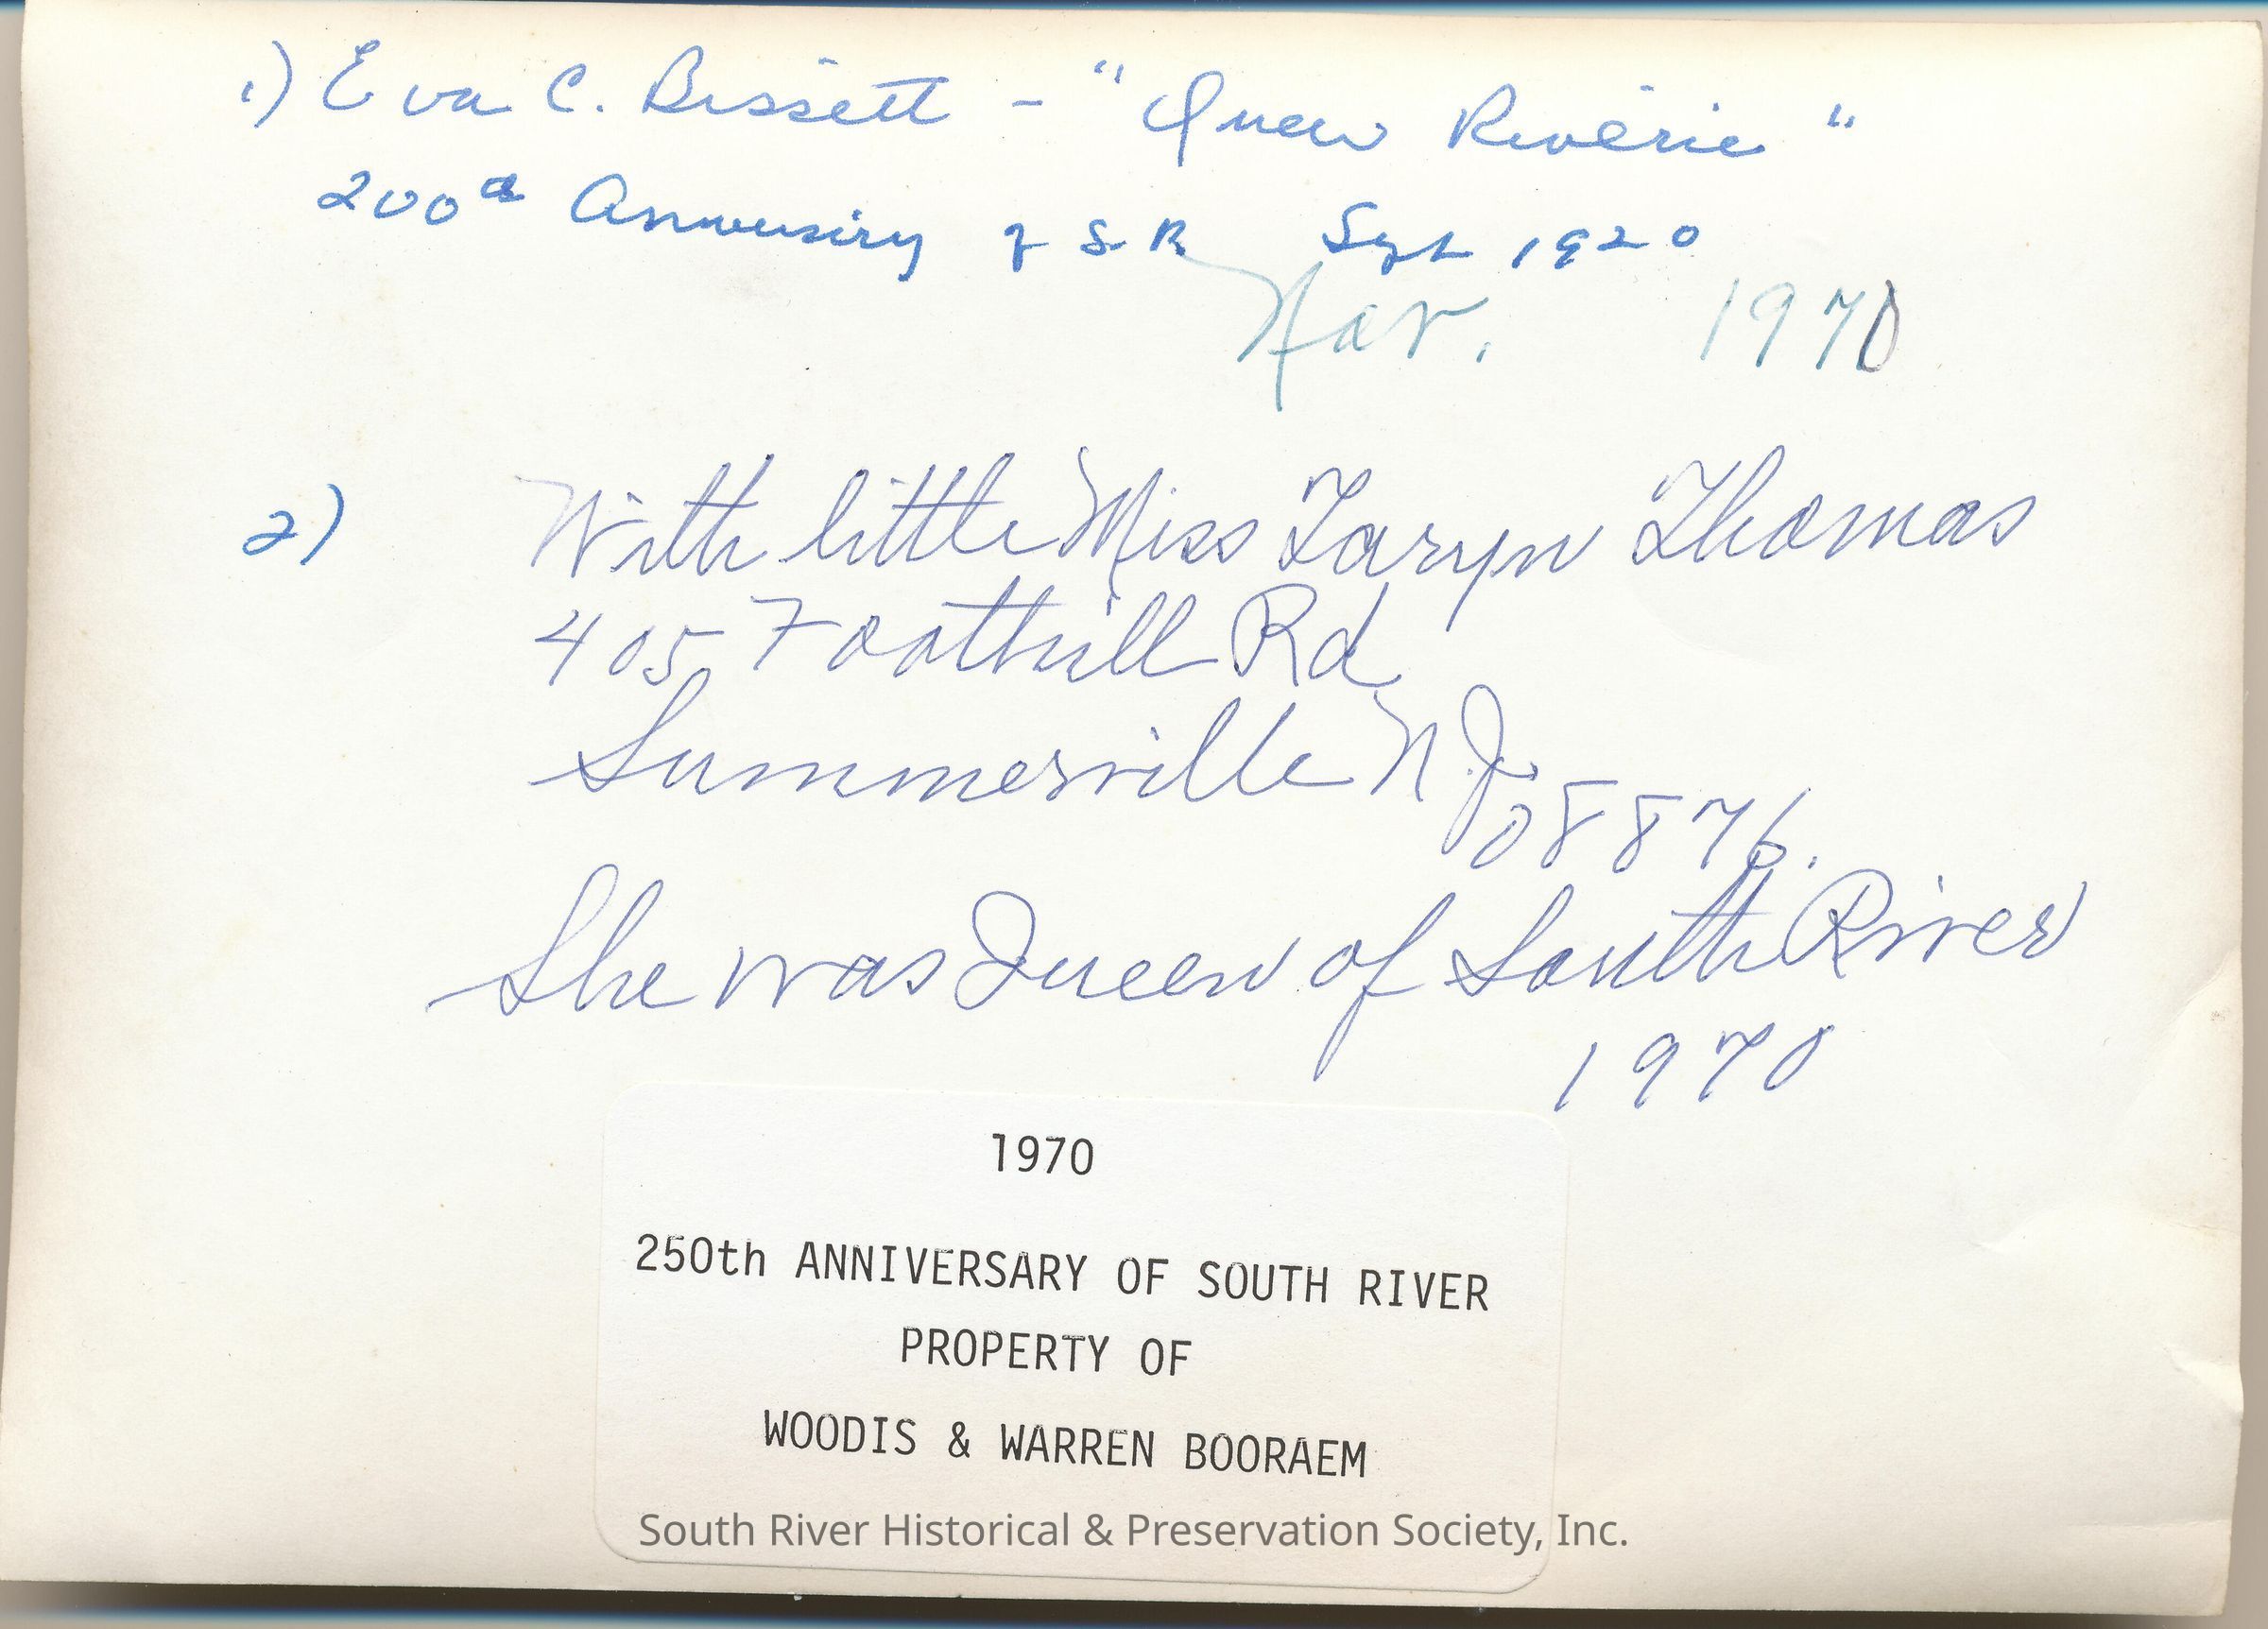 1) Eva C. Bissett - "Queen Reverie"
200th Anniversiry of S R Sept 1920
Nov. 1970
2) With little Miss Taryn Thomas
405 Foothill Rd
Summerville N.J.
08876.
She was Queen of South River
1970
1970
250th ANNIVERSARY OF SOUTH RIVER
PROPERTY OF
WOODIS & WARREN BOORAEM
South River Historical & Preservation Society, Inc.